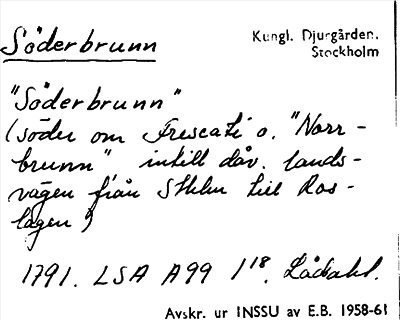 Söderbrunn
Kungl. Djurgården.
Stockholm
"Söderbrunn"
(söder om Frescati o. "Norr-
brunn" intill dåv. lands-
vägen från Sthlm till Ros-
lagen)
1791. LSA A99 1¹⁸.
Avskr. ur INSSU av E.B. 1958-61